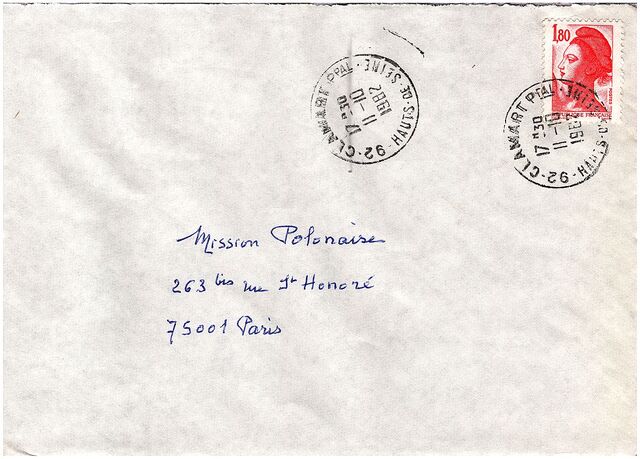 1,80
POSTES
REPUBLIQUE FRANÇAISE
92-CLAMART PPAL·
HAUTS-DE-SEINE·
17 H30
11-10
1982
92-CLAMART PPAL·
HAUTS-DE-SEINE·
17 H30
11-10
1982
Mission Polonaise
263 bis rue St Honoré
75001 Paris